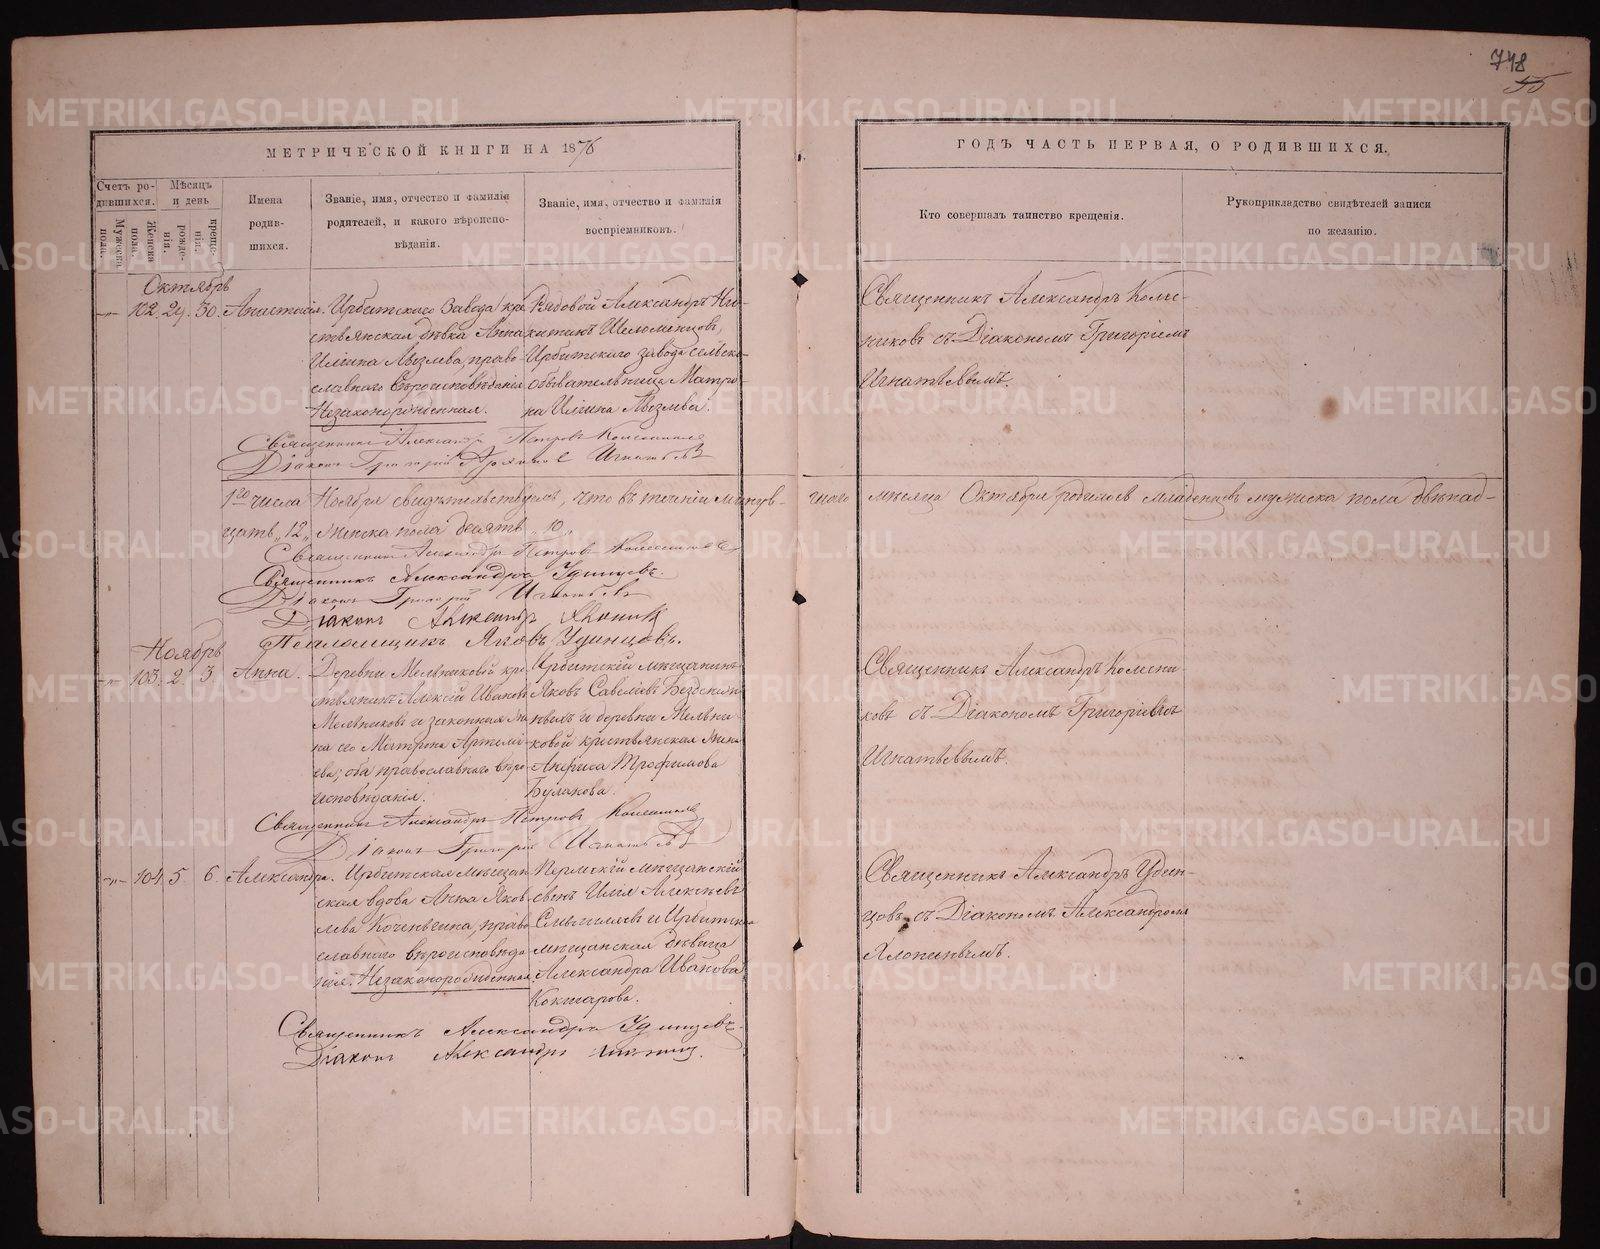 748
55
МЕТРИЧЕСКОЙ КНИГИ НА 1876
ГОДЪ ЧАСТЬ ПЕРВАЯ, О РОДИВШИХСЯ.
Счетъ ро-
дившихся.
Мужеска
пола.
Женска
пола.
Мѣсяцъ
и день
рожде-
нія.
креще-
нія.
Имена
родив-
шихся.
Званіе, имя, отчество и фамилія
родителей, и какого вѣроиспо-
вѣданія.
Званіе, имя, отчество и фамилія
воспріемниковъ.
Кто совершалъ таинство крещенія.
Рукоприкладство свидѣтелей записи
по желанію.
Октябрь
102. 29. 30. Анастасія.
Ирбитскаго Завода кре
стьянская дѣвка Анна
Ильина православнаго
вѣроисповѣданія
Незаконорожденная.
Рядовой Александръ Ни-
китинъ Шеломенцовъ,
Ирбитскаго завода сельско-
обывательница Матро-
на Ильина
Священникъ Александръ Колес-
никовъ съ Діакономъ Григоріемъ
Игнатьевымъ.
Священникъ Александръ Петровъ Колесниковъ
Діаконъ Григорій Игнатьевъ
1го числа Ноября свидѣтельствуемъ, что въ теченіи минув-
шаго мѣсяца Октября родилось младенцевъ мужеска пола двѣнад-
цать „12„ женска пола десять „10„
Священникъ Александръ Петровъ Колесниковъ
Священникъ Александръ Удинцевъ.
Діаконъ Григорій Игнатьевъ
Діаконъ Александръ
Псаломщикъ Яковъ Удинцовъ.
Ноябрь
103. 2 3 Анна.
Деревни Мельниковой кре
стьянинъ Алексій Ивановъ
Мельниковъ и законная же
на его Матрона Артемі-
ева; оба православнаго вѣро
исповѣданія.
Ирбитскій мѣщанинъ
Яковъ Савельевъ
и деревни Мельни
ковой крестьянская жена
Анфиса Трофимова
Булакова.
Священникъ Александръ Колесни
ковъ съ Діакономъ Григоріемъ
Игнатьевымъ.
Священникъ Александръ Петровъ Колесниковъ
Діаконъ Григорій Игнатьевъ
104 5 6. Александра.
Ирбитская мѣщан
ская вдова Анна Яков
лева православнаго
вѣроисповѣда
нія. Незаконорожденная.
Пермскій мѣщанскій
сынъ Илья Алексѣевъ
и Ирбитская
мѣщанская дѣвица
Александра Иванова
Кокшарова.
Священникъ Александръ Удин-
цовъ съ Діакономъ Александромъ
Священникъ Александръ Удинцевъ.
Діаконъ Александръ
METRIKI.GASO-URAL.RU